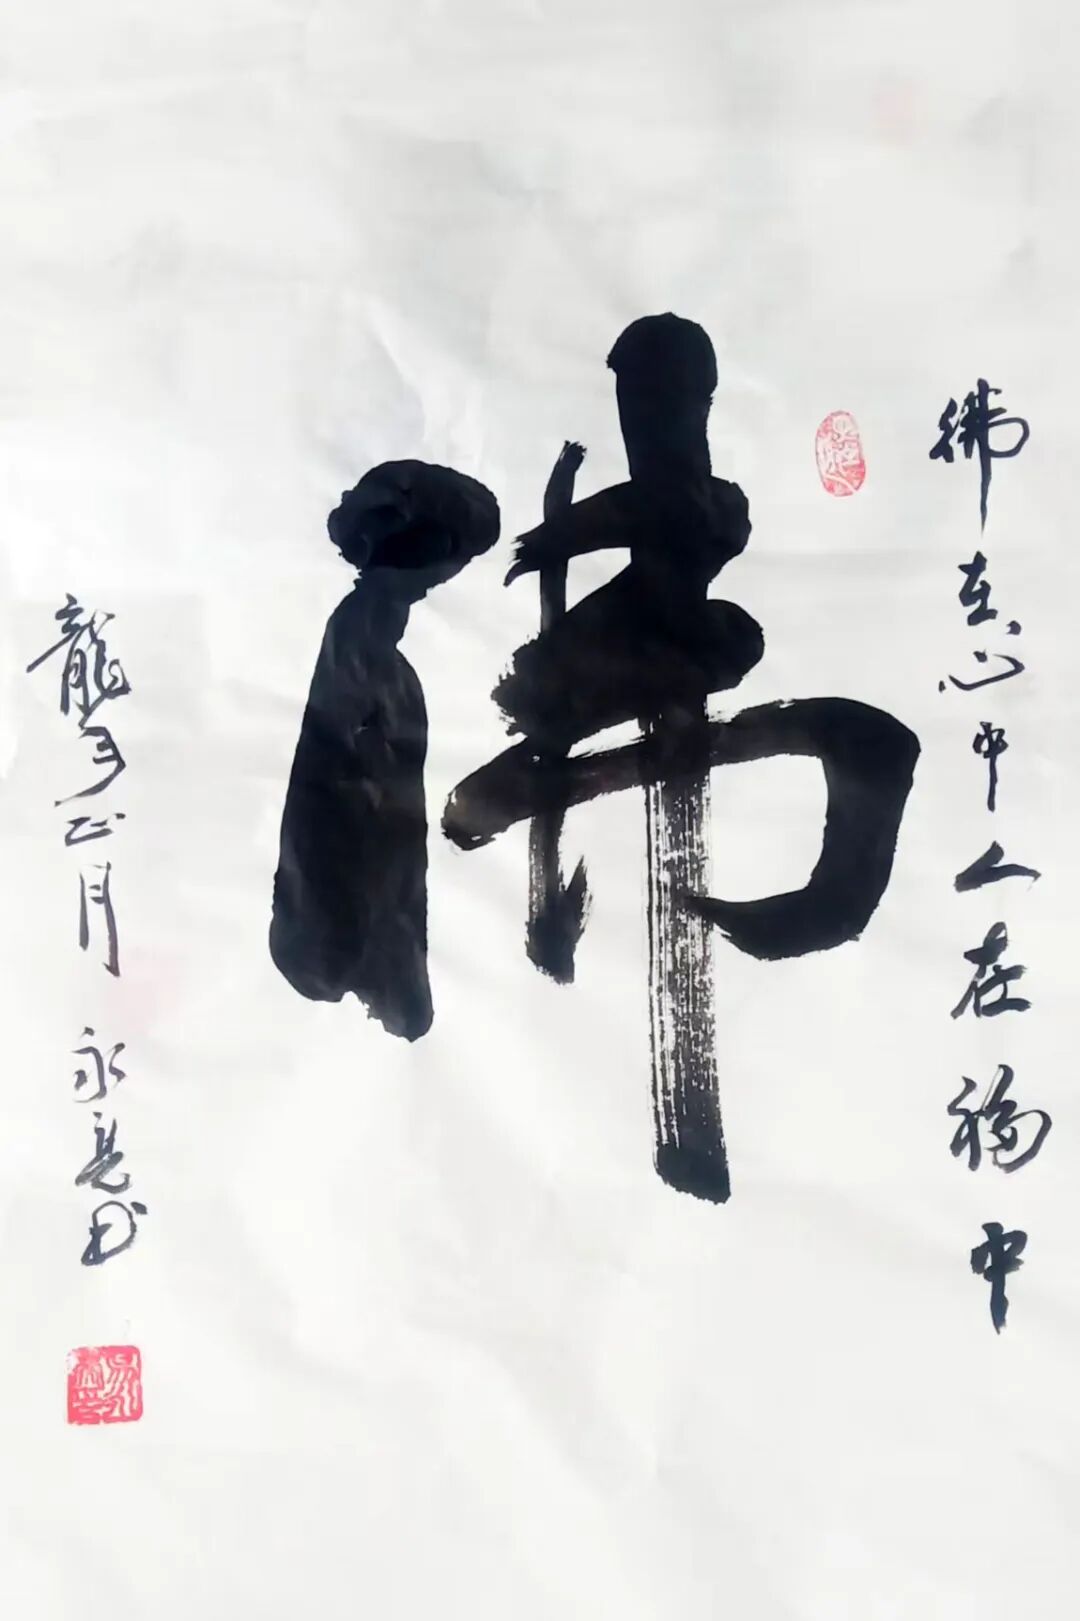 佛在心中人在福中
佛
龍年正月 永亮书